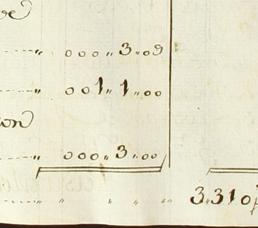 000 „ 3 „ 09
001 „ 1 „ 00
on
000 „ 3 „ 00
3„310